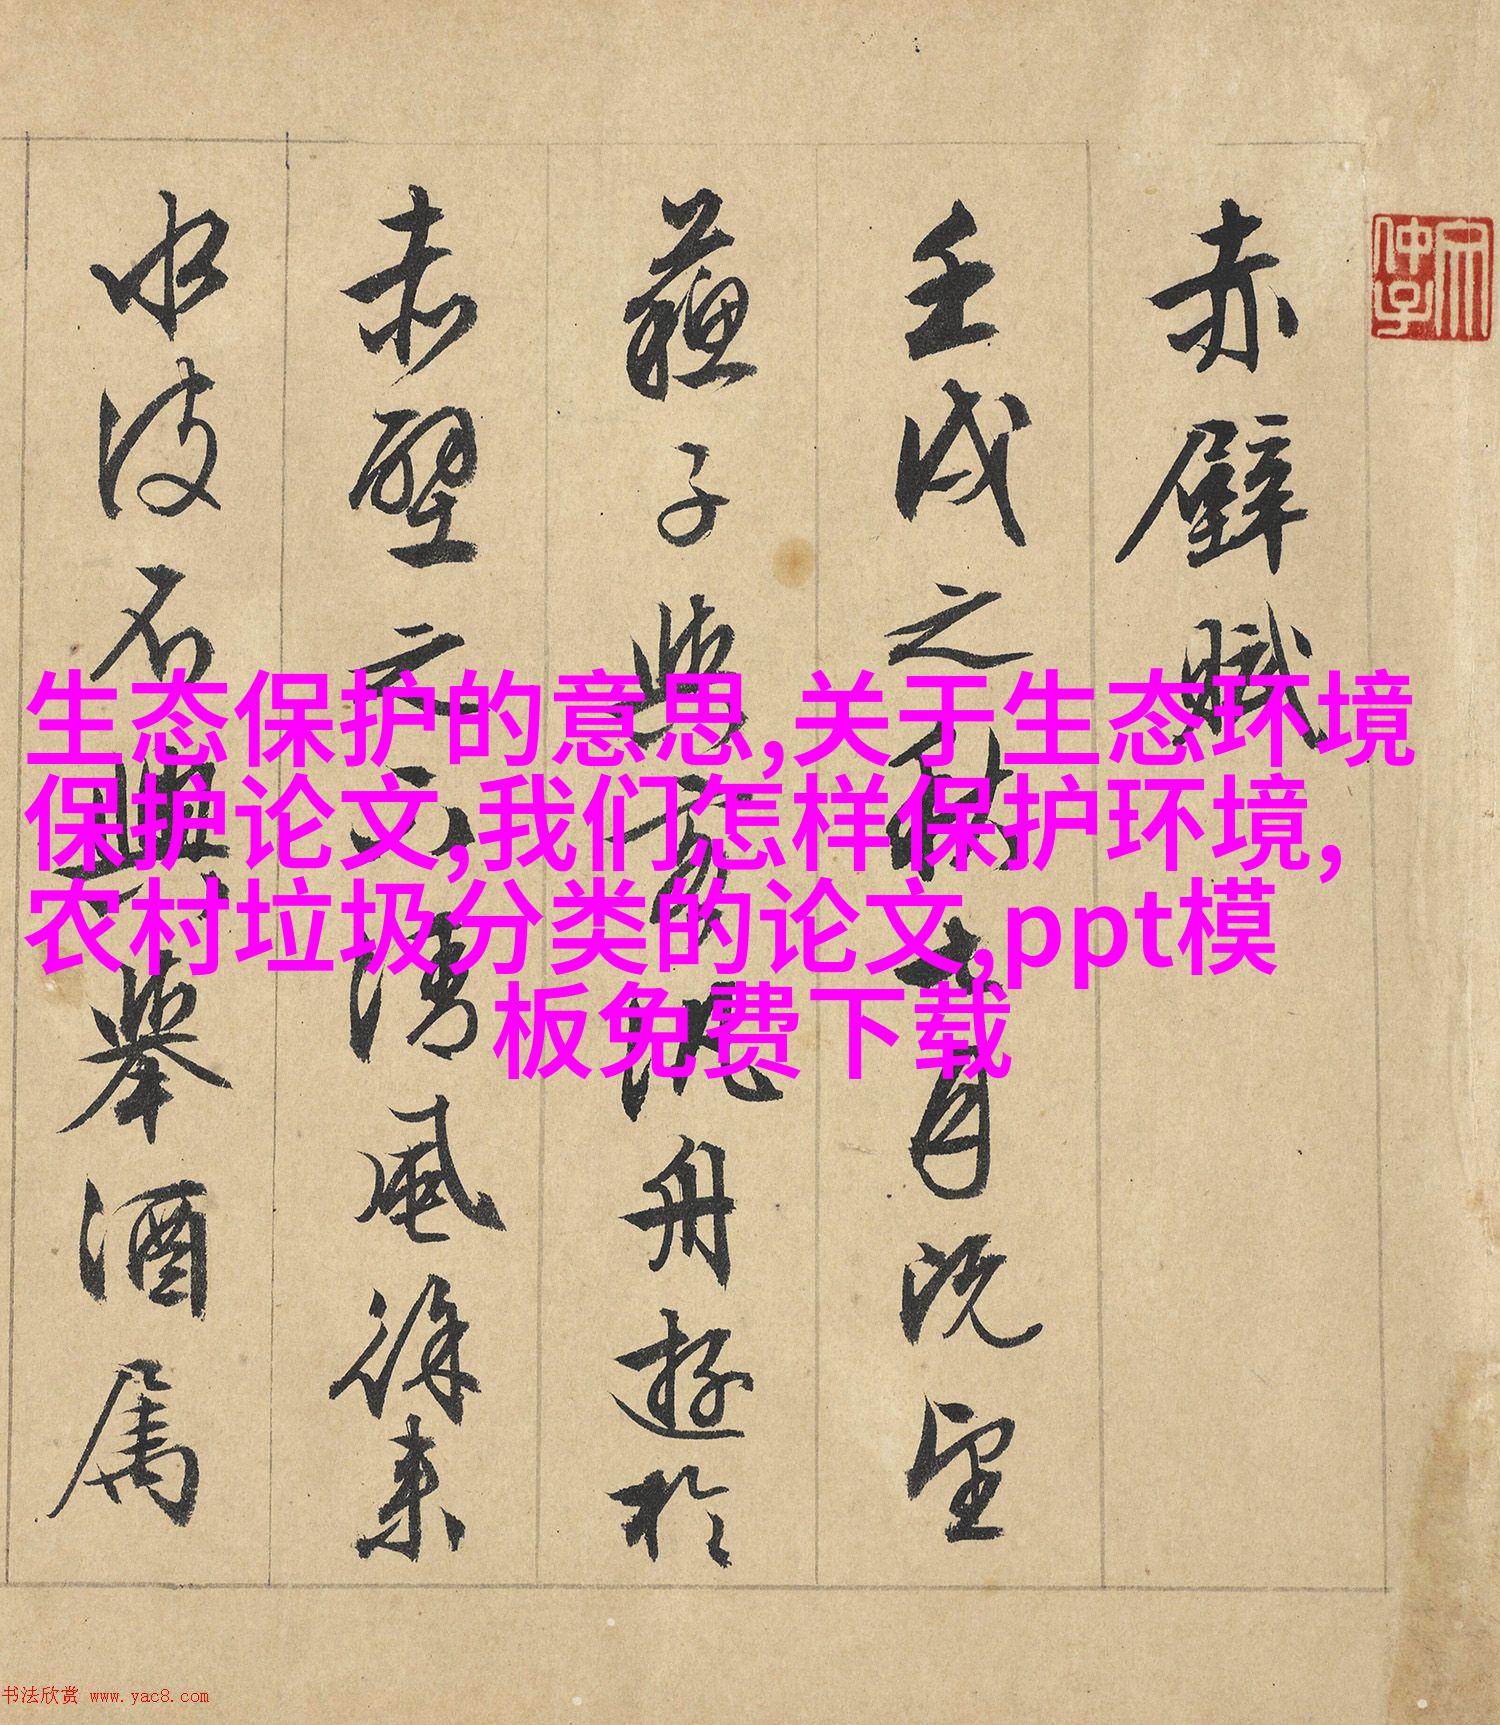 赤壁賦
壬戌之秋七月既望
蘇子與客汎舟遊於
赤壁之下清風徐來
水波不興舉酒屬
生态保护的意思,关于生态环境
保护论文,我们怎样保护环境,
农村垃圾分类的论文,ppt模
板免费下载
书法欣赏 www.yac8.com